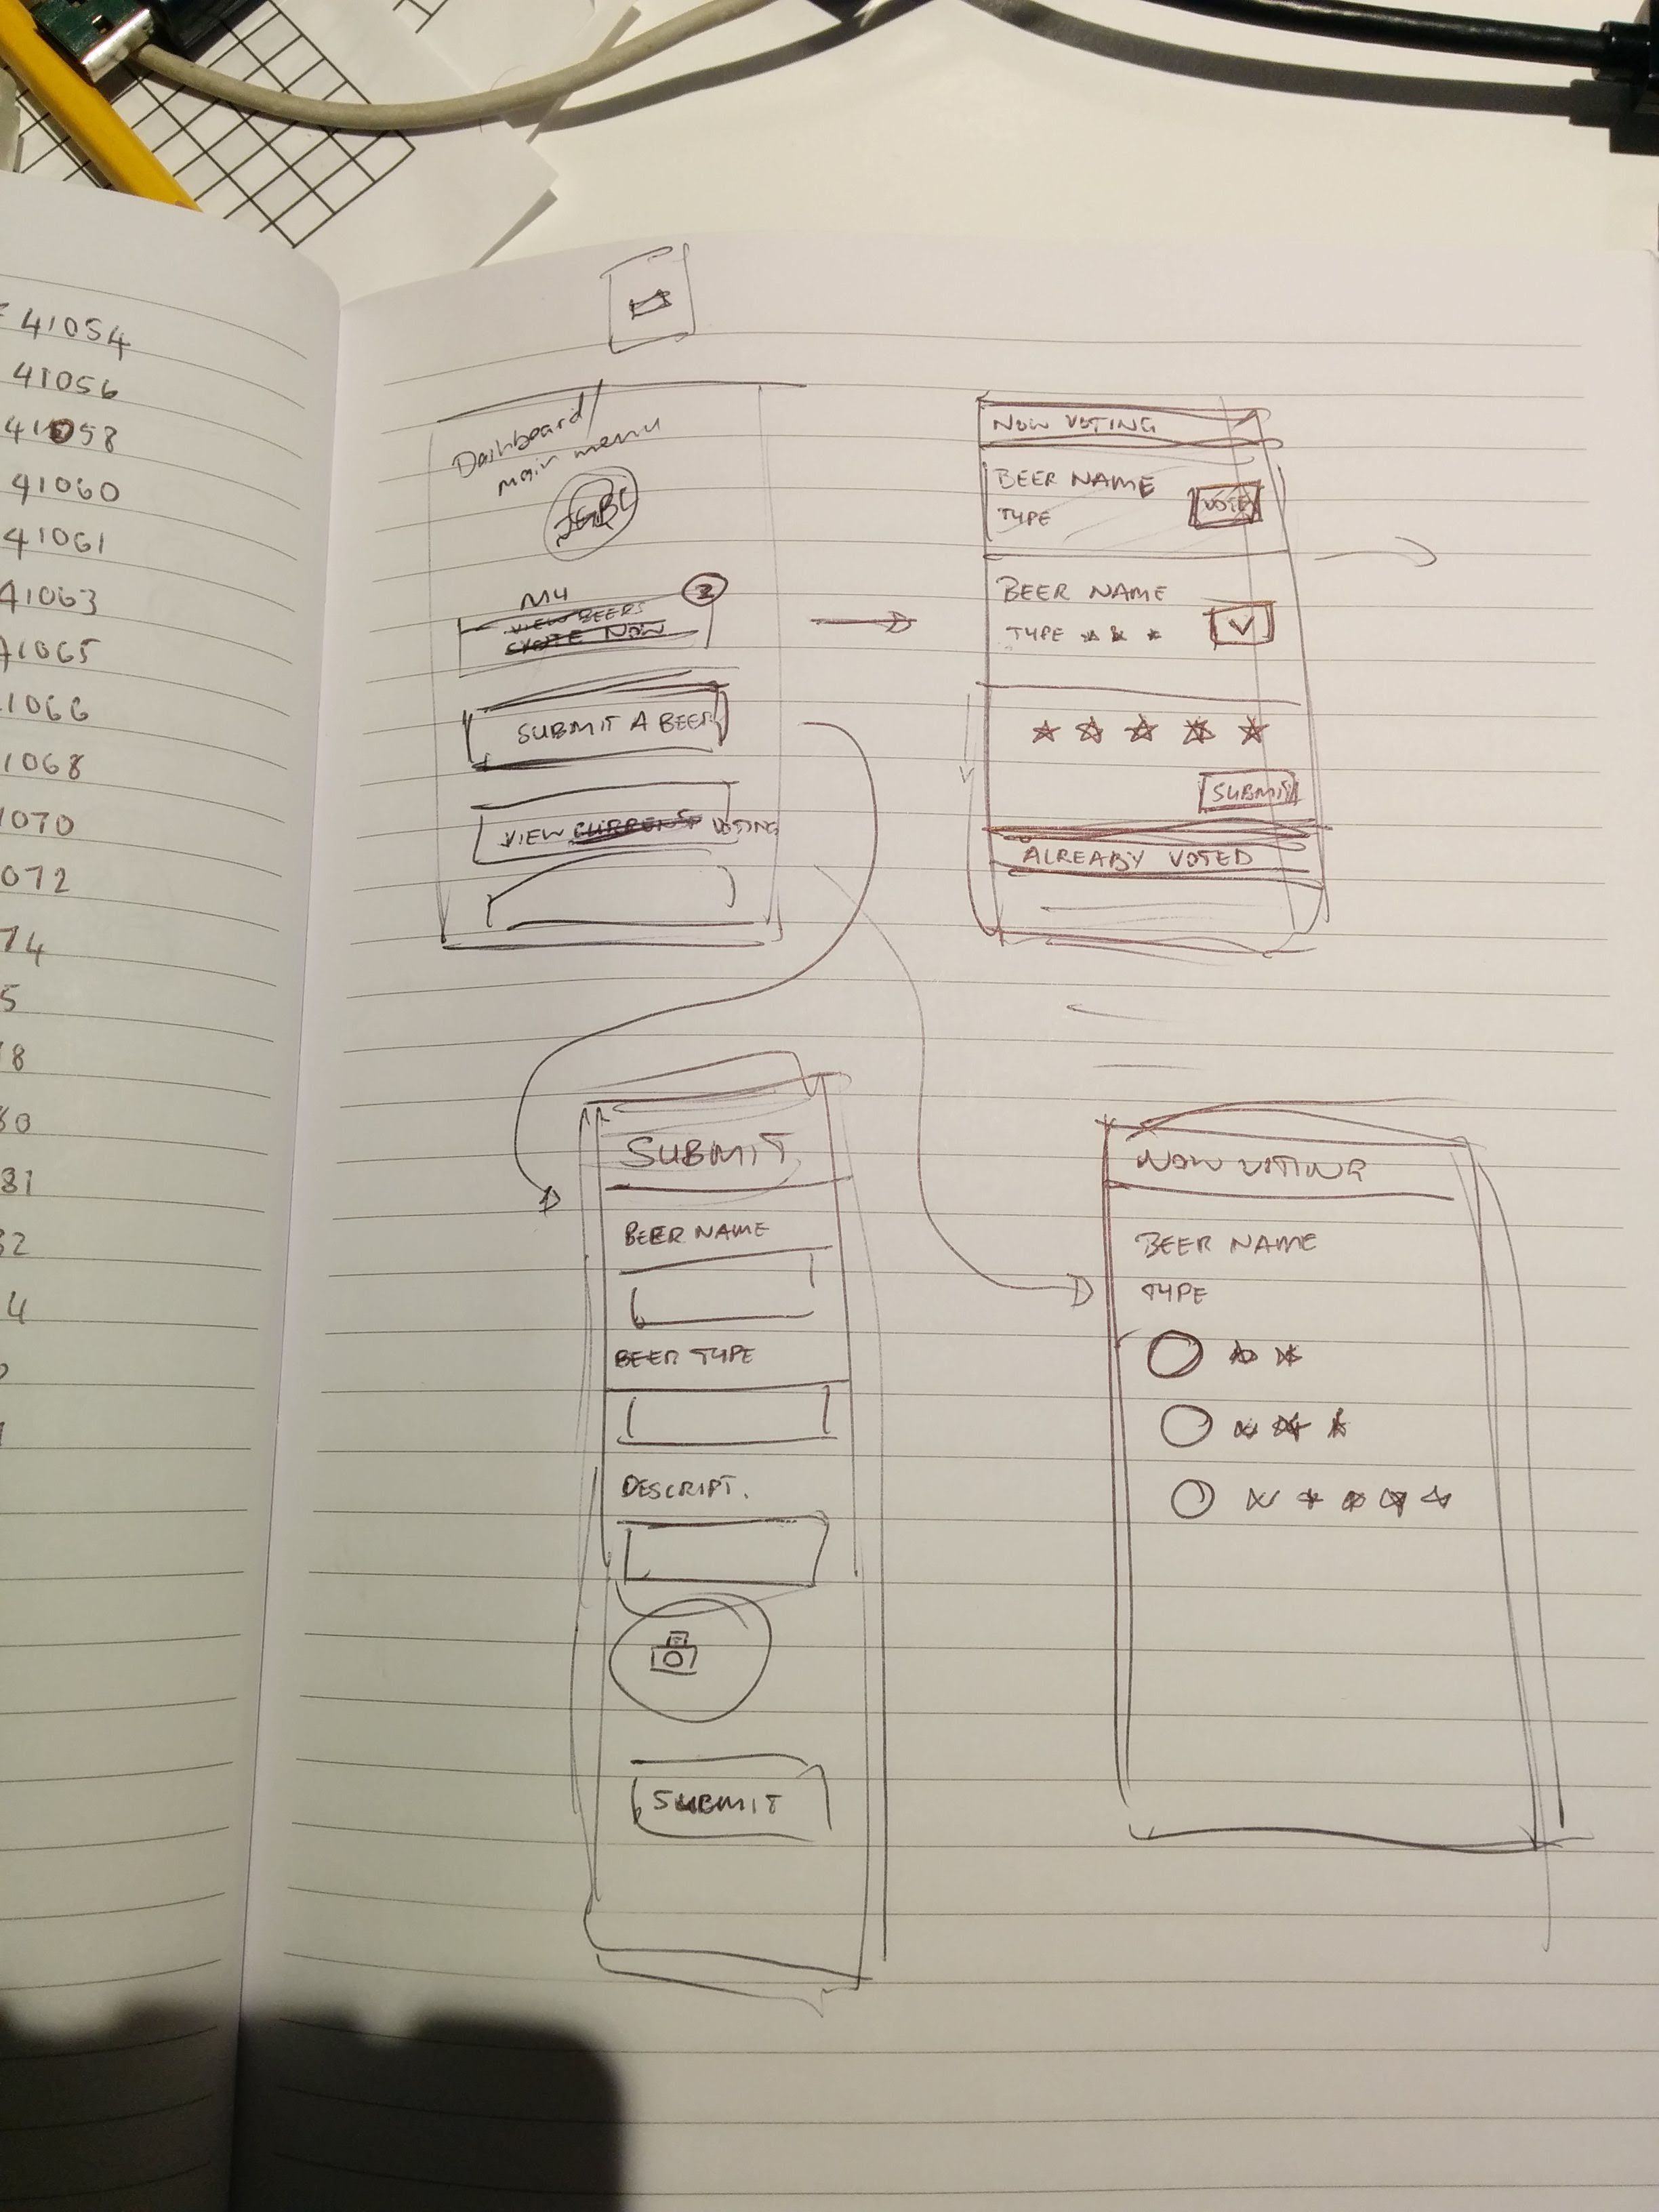 41054
41056
41058
41060
41061
41063
41065
1066
1068
1070
072
74
5
8
80
81
32
4
Dashboard/
main menu
MY
VIEW BEERS
VOTE NOW
2
SUBMIT A BEER
VIEW CURRENT VOTING
NOW VOTING
BEER NAME
TYPE
VOTE
BEER NAME
TYPE
SUBMIT
ALREADY VOTED
SUBMIT
BEER NAME
BEER TYPE
DESCRIPT.
SUBMIT
NOW VOTING
BEER NAME
TYPE